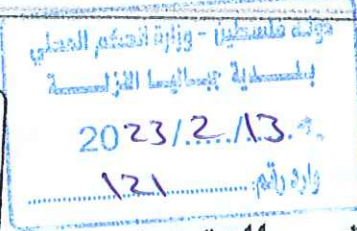 دولة فلسطين - وزارة الحكم المحلي
بلـــدية جباليا النزلـــة
2023/2/13 م
وارد رقم: 121